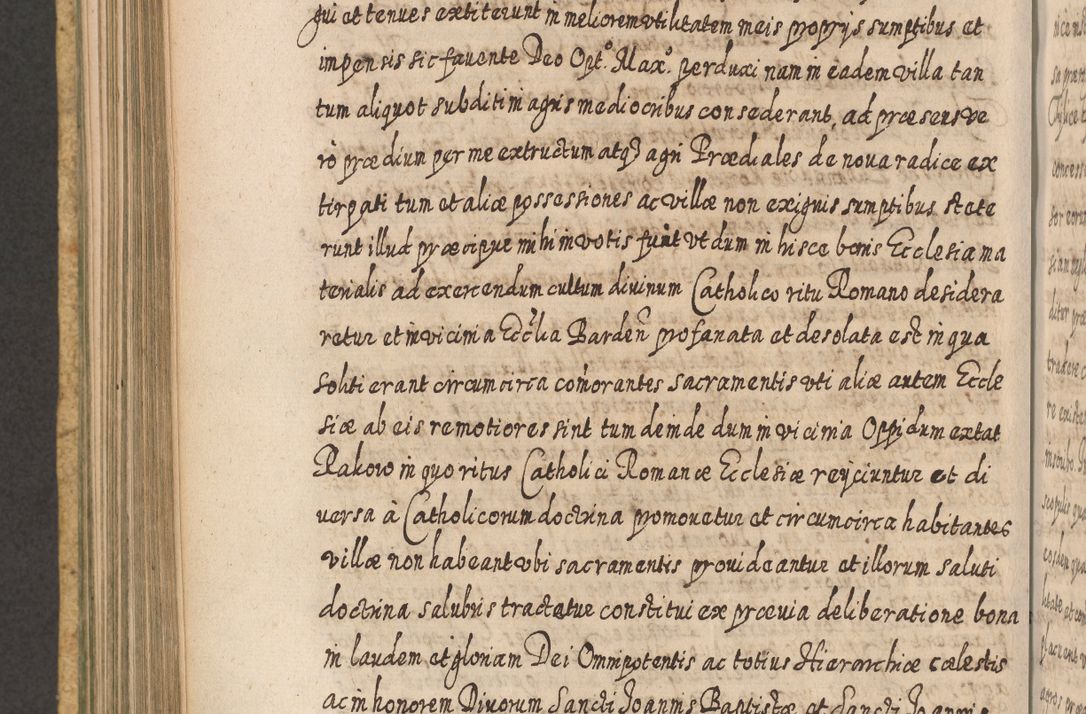 gui et tenues extiterunt in meliorem vtilitatem meis proprÿs sumptibus et
impensis sic fauente Deo Opt.° Max.° perduxi nam in eadem villa tan
tum aliquot subditi in agris mediocribus consederant, ad præsens ve
rò prædium per me extructum atq3 agri Prædiales de noua radice ex
tirpati tum et aliæ possessiones ac villæ non exiguis sumptibus stete
runt illud præcipue mihi in votis fuit vt dum in hisce bonis Ecclesia ma
terialis ad exercendum cultum diuinum Catholico ritu Romano desidera
retur et in vicinia Eccľia Bardeñ profanata et desolata est in qua
soliti erant circumcirca com̃orantes sacramentis vti aliæ autem Eccle
siæ ab eis remotiores sint tum deinde dum in vicinia Oppidum extat
Rakow in quo ritus Catholici Romanæ Ecclesiæ reÿciuntur et di
uersa à Catholicorum doctrina promouetur et circumcirca habitantes
villæ non habeant vbi sacramentis prouideantur et illorum saluti
doctrina salubris tractatur constitui ex præuia deliberatione bona
in laudem et gloriam Dei Omnipotentis ac totius Hierarchiæ cælestis
ac in honorem Diuorum Sancti Joannis Baptistæ et Sancti Joannis